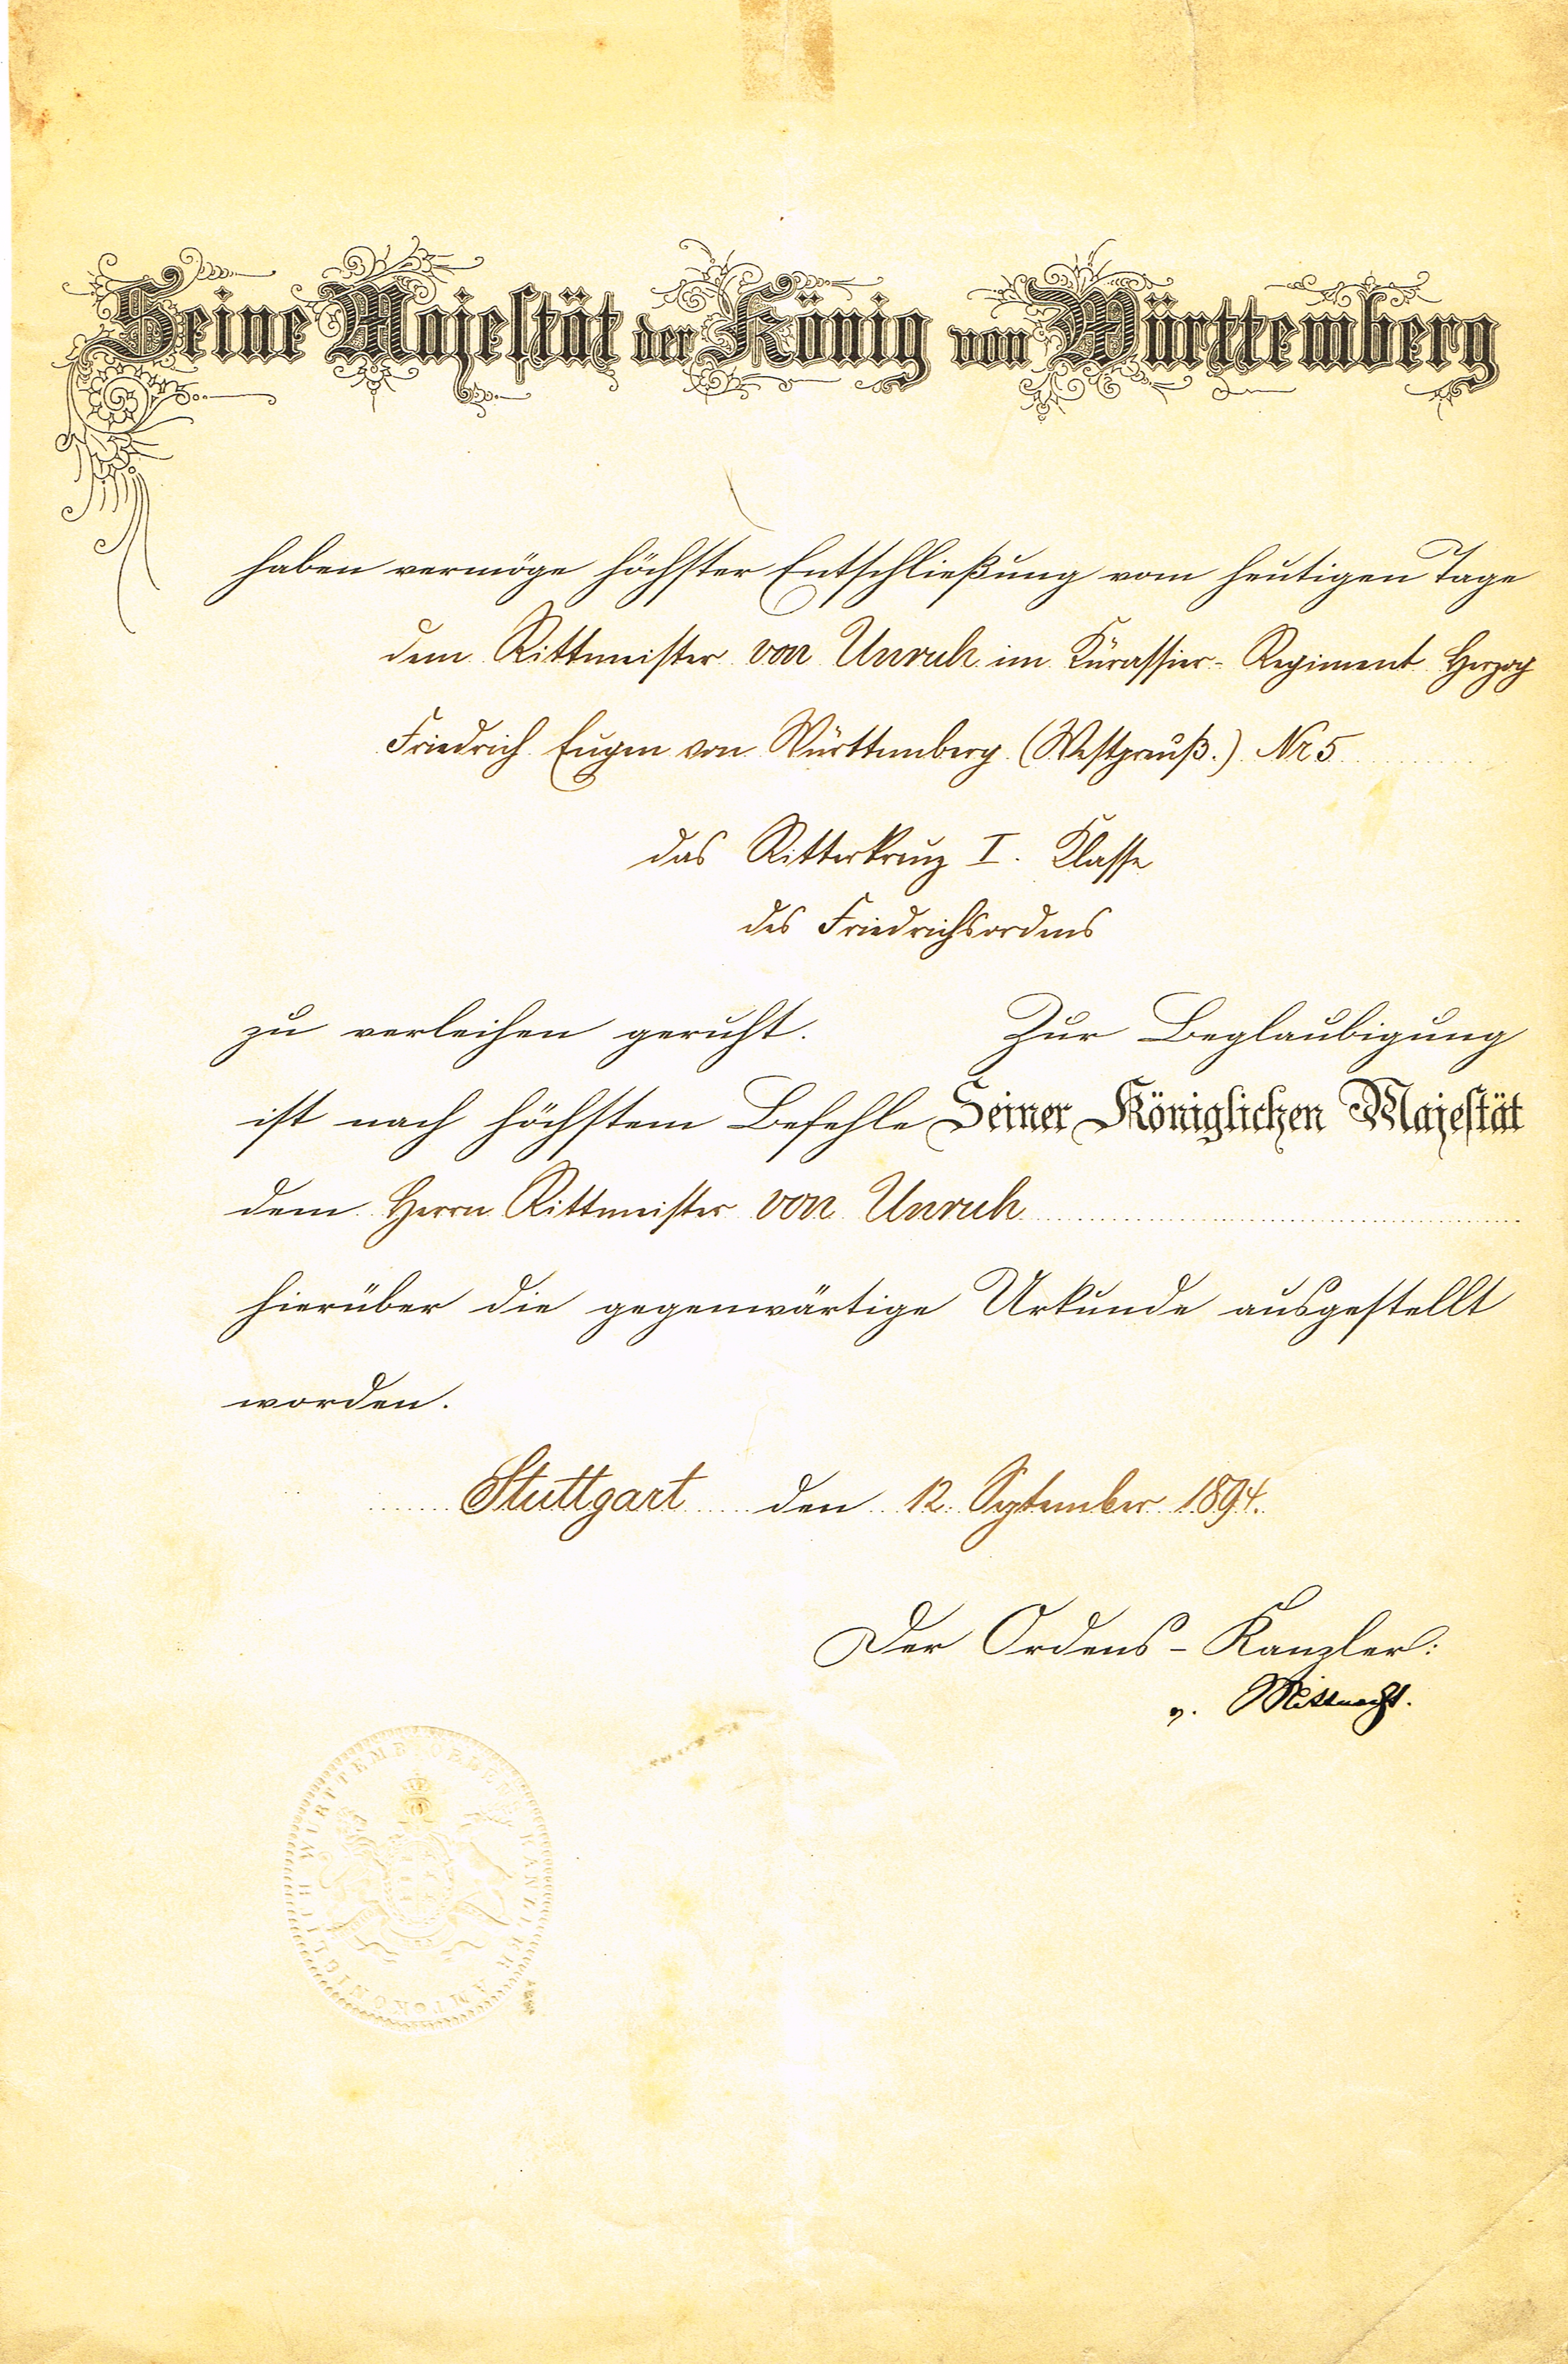 Seine Majestät der König von Württemberg
haben vermöge höchster Entschließung vom heutigen Tage
dem Rittmeister von Unruh im Kürassier-Regiment Herzog
Friedrich Eugen von Württemberg (Westpreuß.) Nr 5
das Ritterkreuz I. Klasse
des Friedrichsordens
zu verleihen geruht. Zur Beglaubigung
ist nach höchstem Befehle Seiner Königlichen Majestät
dem Herrn Rittmeister von Unruh
hierüber die gegenwärtige Urkunde ausgestellt
worden.
Stuttgart den 12. September 1894.
Der Ordens-Kanzler:
v. Mittnacht.